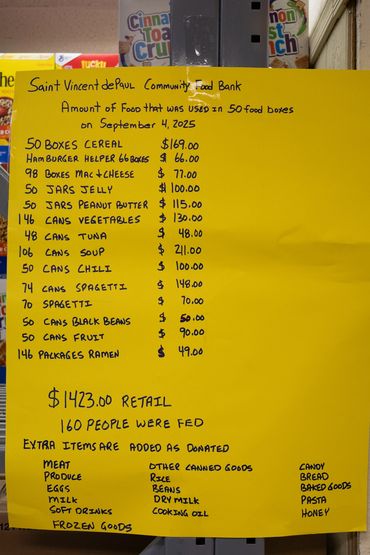 Cinna
Toa
Cru
mon
st
nch
he
Lucky
Saint Vincent dePaul Community Food Bank
Amount of Food that was used in 50 food boxes
on September 4, 2025
50 BOXES CEREAL $169.00
HAMBURGER HELPER 66 BOXES $ 66.00
98 BOXES MAC + CHEESE $ 77.00
50 JARS JELLY $ 100.00
50 JARS PEANUT BUTTER $ 115.00
146 CANS VEGETABLES $ 130.00
48 CANS TUNA $ 48.00
106 CANS SOUP $ 211.00
50 CANS CHILI $ 100.00
74 CANS SPAGETTI $ 148.00
70 SPAGETTI $ 70.00
50 CANS BLACK BEANS $ 50.00
50 CANS FRUIT $ 90.00
146 PACKAGES RAMEN $ 49.00
$1423.00 RETAIL
160 PEOPLE WERE FED
EXTRA ITEMS ARE ADDED AS DONATED
MEAT OTHER CANNED GOODS CANDY
PRODUCE RICE BREAD
EGGS BEANS BAKED GOODS
MILK DRY MILK PASTA
SOFT DRINKS COOKING OIL HONEY
FROZEN GOODS